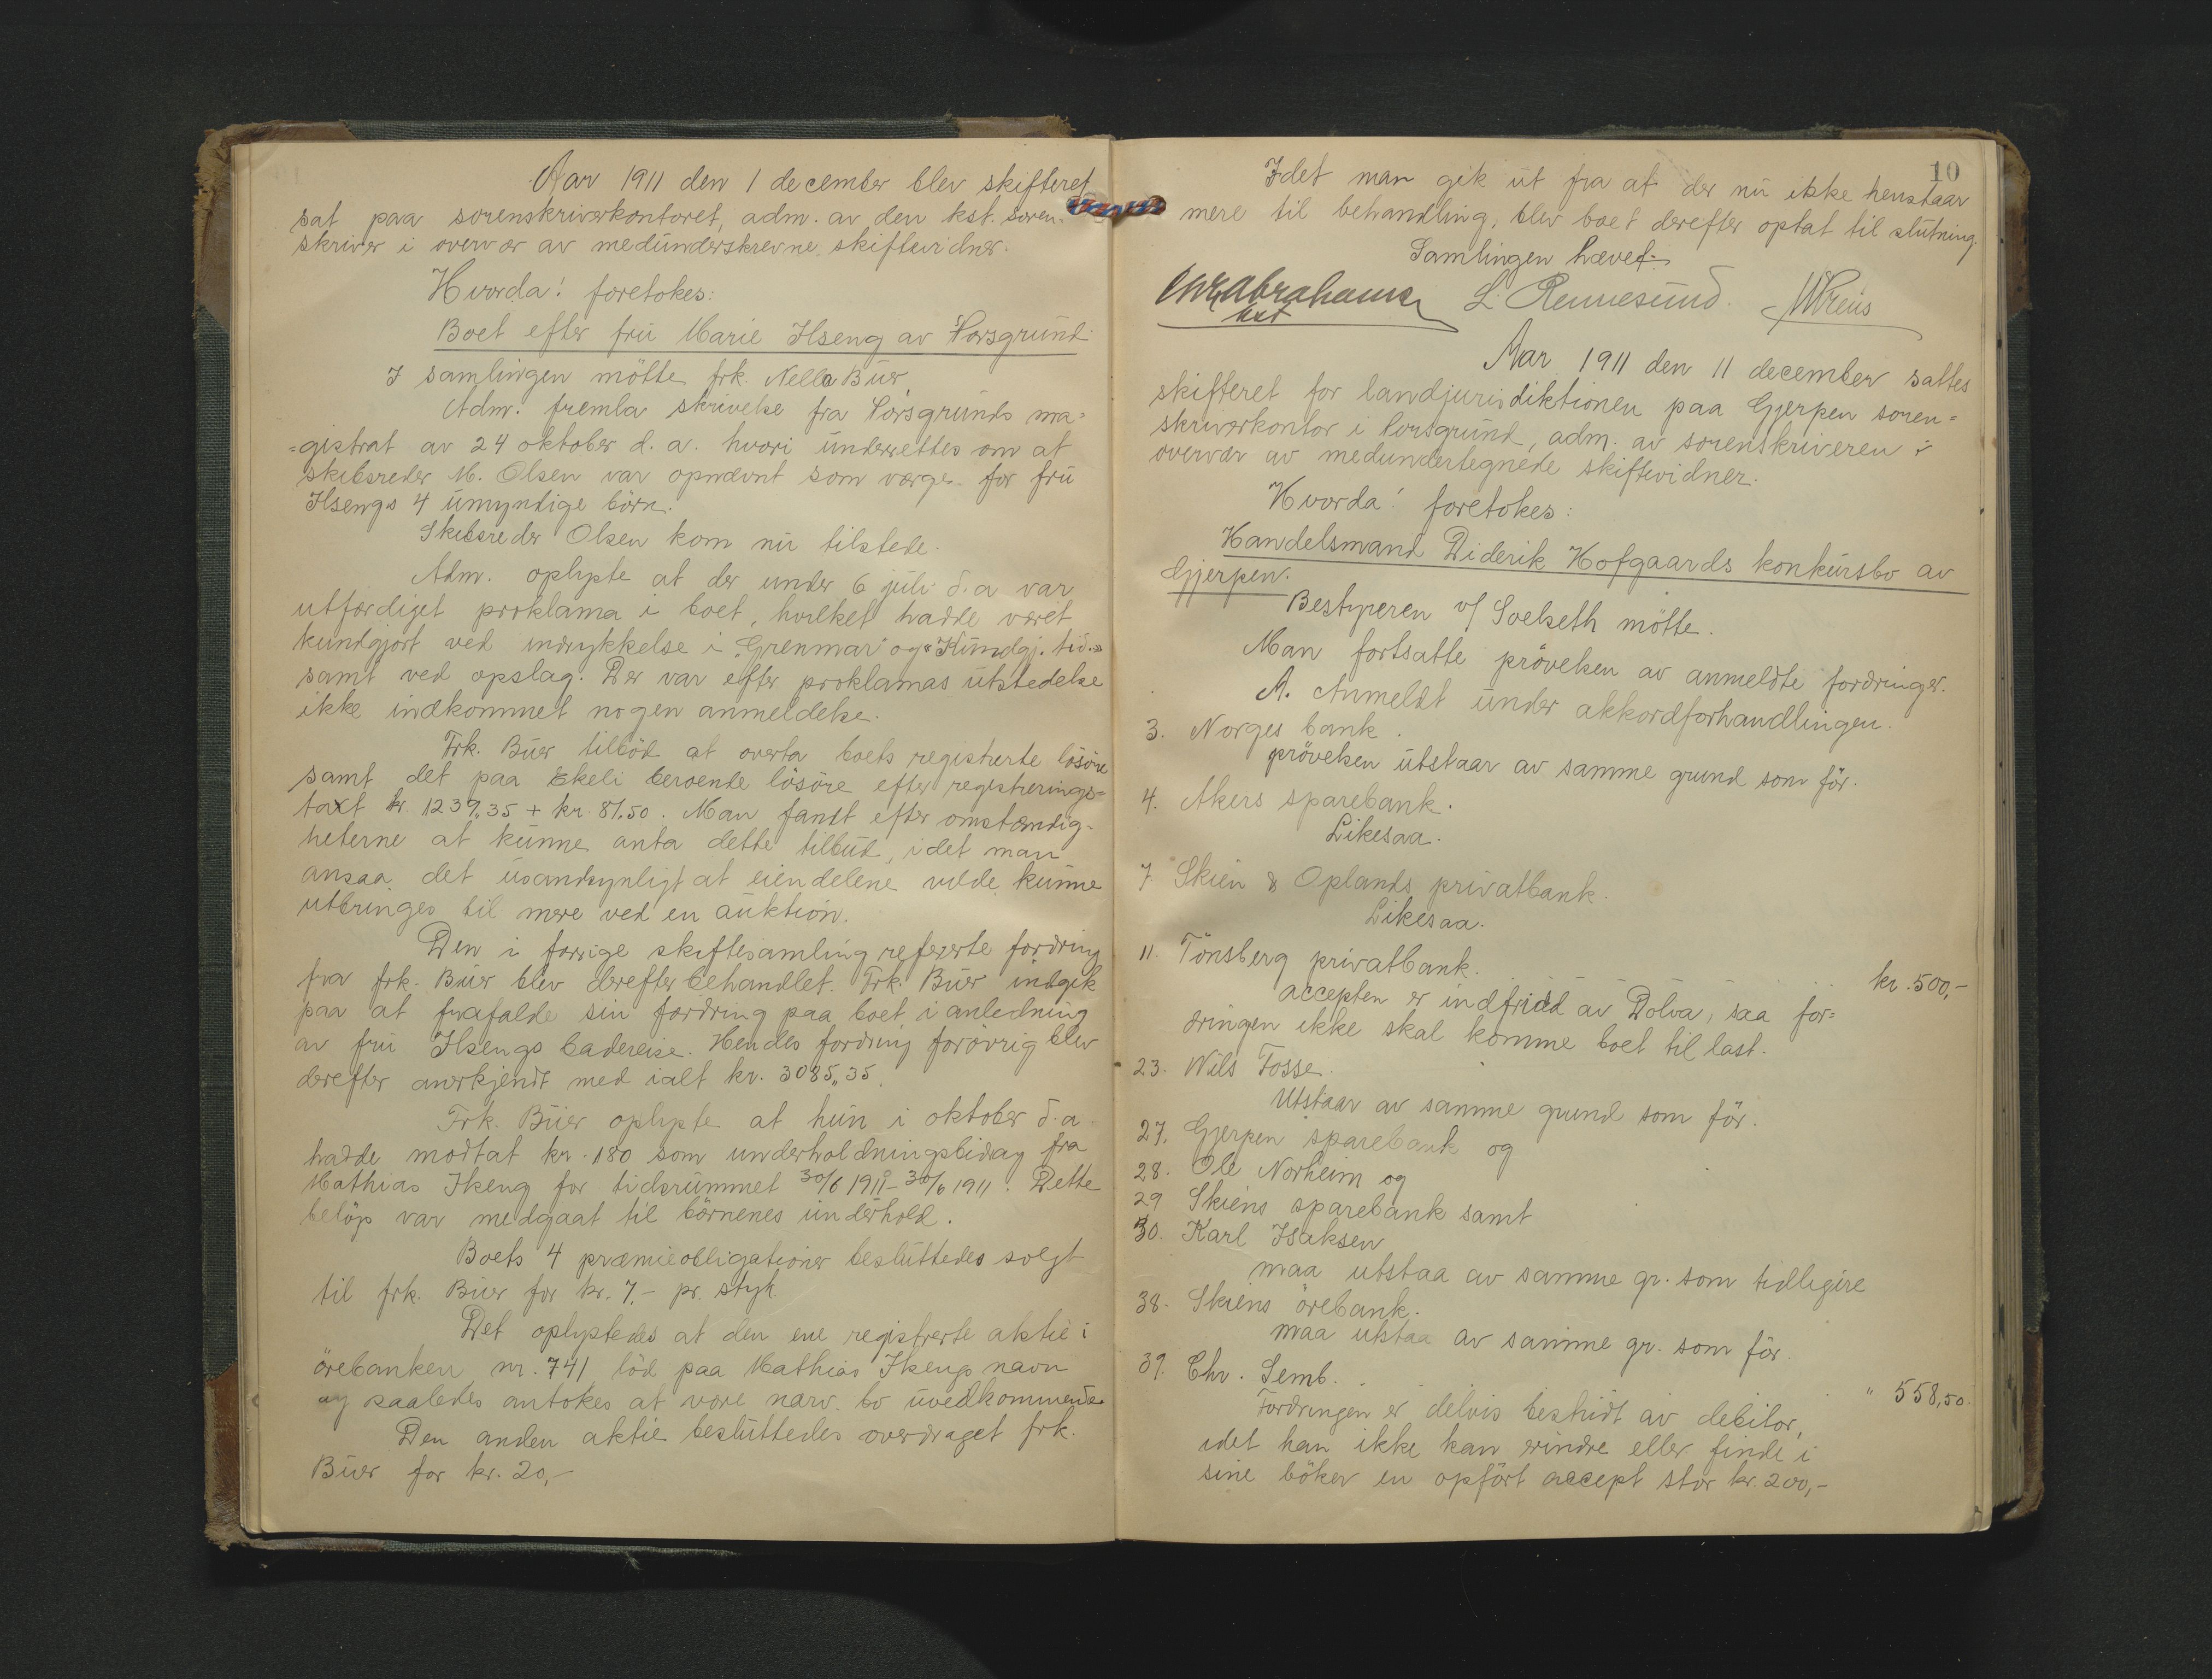 Aar 1911 den 1 december blev skifteret
sat paa sorenskriverkontoret, adm. av den kst. soren-
skriver i overvær av medunderskrevne skiftevidner.
Hvorda! foretokes:
Boet efter fru Marie Ilseng av Porsgrund.
I samlingen mötte frk. Nella Buer
Adm. fremla skrivelse fra Porsgrunds ma=
=gistrat av 24 oktober d. a. hvori underrettes om at
skibsreder M. Olsen var opnævnt som værge for fru
Ilsengs 4 umyndige börn.
Skibsreder Olsen kom nu tilstede.
Adm. oplyste at der under 6 juli d. a var
utfærdiget proklama i boet, hvilket hadde været
kundgjort ved indrykkelse i "Grenmar" og "Kundgj. tid."
samt ved opslag. Der var efter proklamas utstedelse
ikke indkommet nogen anmeldelse.
Frk. Buer tilböd at overta boets registrerte lösöre
samt det paa Ekeli beroende lösöre efter registrerings=
taxt kr. 1239,35 + kr. 81,50. Man fandt efter omstændig-
heterne at kunne anta dette tilbud, idet man
ansaa det usandsynligt at eiendelene vilde kunne
utbringes til mere ved en auktion.
Den i forrige skiftesamling refererte fordring
fra frk. Buer blev derefter behandlet. Frk. Buer indgik
paa at frafalde sin fordring paa boet i anledning
av fru Ilsengs badereise. Hendes fordring forövrig blev
derefter anerkjendt med ialt kr. 3085,35.
Frk. Buer oplyste at hun i oktober d. a
hadde mottat kr. 180 som underholdningsbidrag fra
Mathias Ilseng for tidsrummet 30/6 1911 - 30/6 1911. Dette
belöp var medgaat til börnenes underhold.
Boets 4 præmieobligationer besluttedes solgt
til frk. Buer for kr. 7,- pr. styk.
Det oplystedes at den ene registrerte aktie i
örebanken nr. 741 löd paa Mathias Ilsengs navn
og saaledes antokes at være nærv. bo uvedkommende.
Den anden aktie besluttedes overdraget frk.
Buer for kr. 20,-
10
Idet man gik ut fra at der nu ikke henstaar
mere til behandling, blev boet derefter optat til slutning.
Samlingen hævet.
Chr Abrahamsen L. Rennesund.
kst
Aar 1911 den 11 december sattes
skifteret for landjurisdiktionen paa Gjerpen soren=
skriverkontor i Porsgrund, adm. av sorenskriveren i
overvær av medundertegnede skiftevidner.
Hvorda! foretokes:
Handelsmand Diderik Hofgaards konkursbo av
Gjerpen.
Bestyreren v/ Solseth mötte.
Man fortsatte prövelsen av anmeldte fordringer.
A. Anmeldt under akkordforhandlingen.
3. Norges bank.
prövelsen utstaar av samme grund som för.
4. Akers sparebank.
Likesaa.
7. Skien & Oplands privatbank.
Likesaa.
11. Tönsberg privatbank. kr. 500,-
accepten er indfridd av Dolva, saa for=
dringen ikke skal komme boet til last.
23. Nils Fosse.
Utstaar av samme grund som för.
27. Gjerpen sparebank og
28. Ole Norheim og
29 Skiens sparebank samt
30. Karl Isaksen
maa utstaa av samme gr. som tidligere
38. Skiens örebank.
maa utstaa av samme gr. som för.
39. Chr. Semb. " 558,50.
Fordringen er delvis bestridt av debitor,
idet han ikke kan erindre eller finde i
sine böker en opfört accept stor kr. 200,-